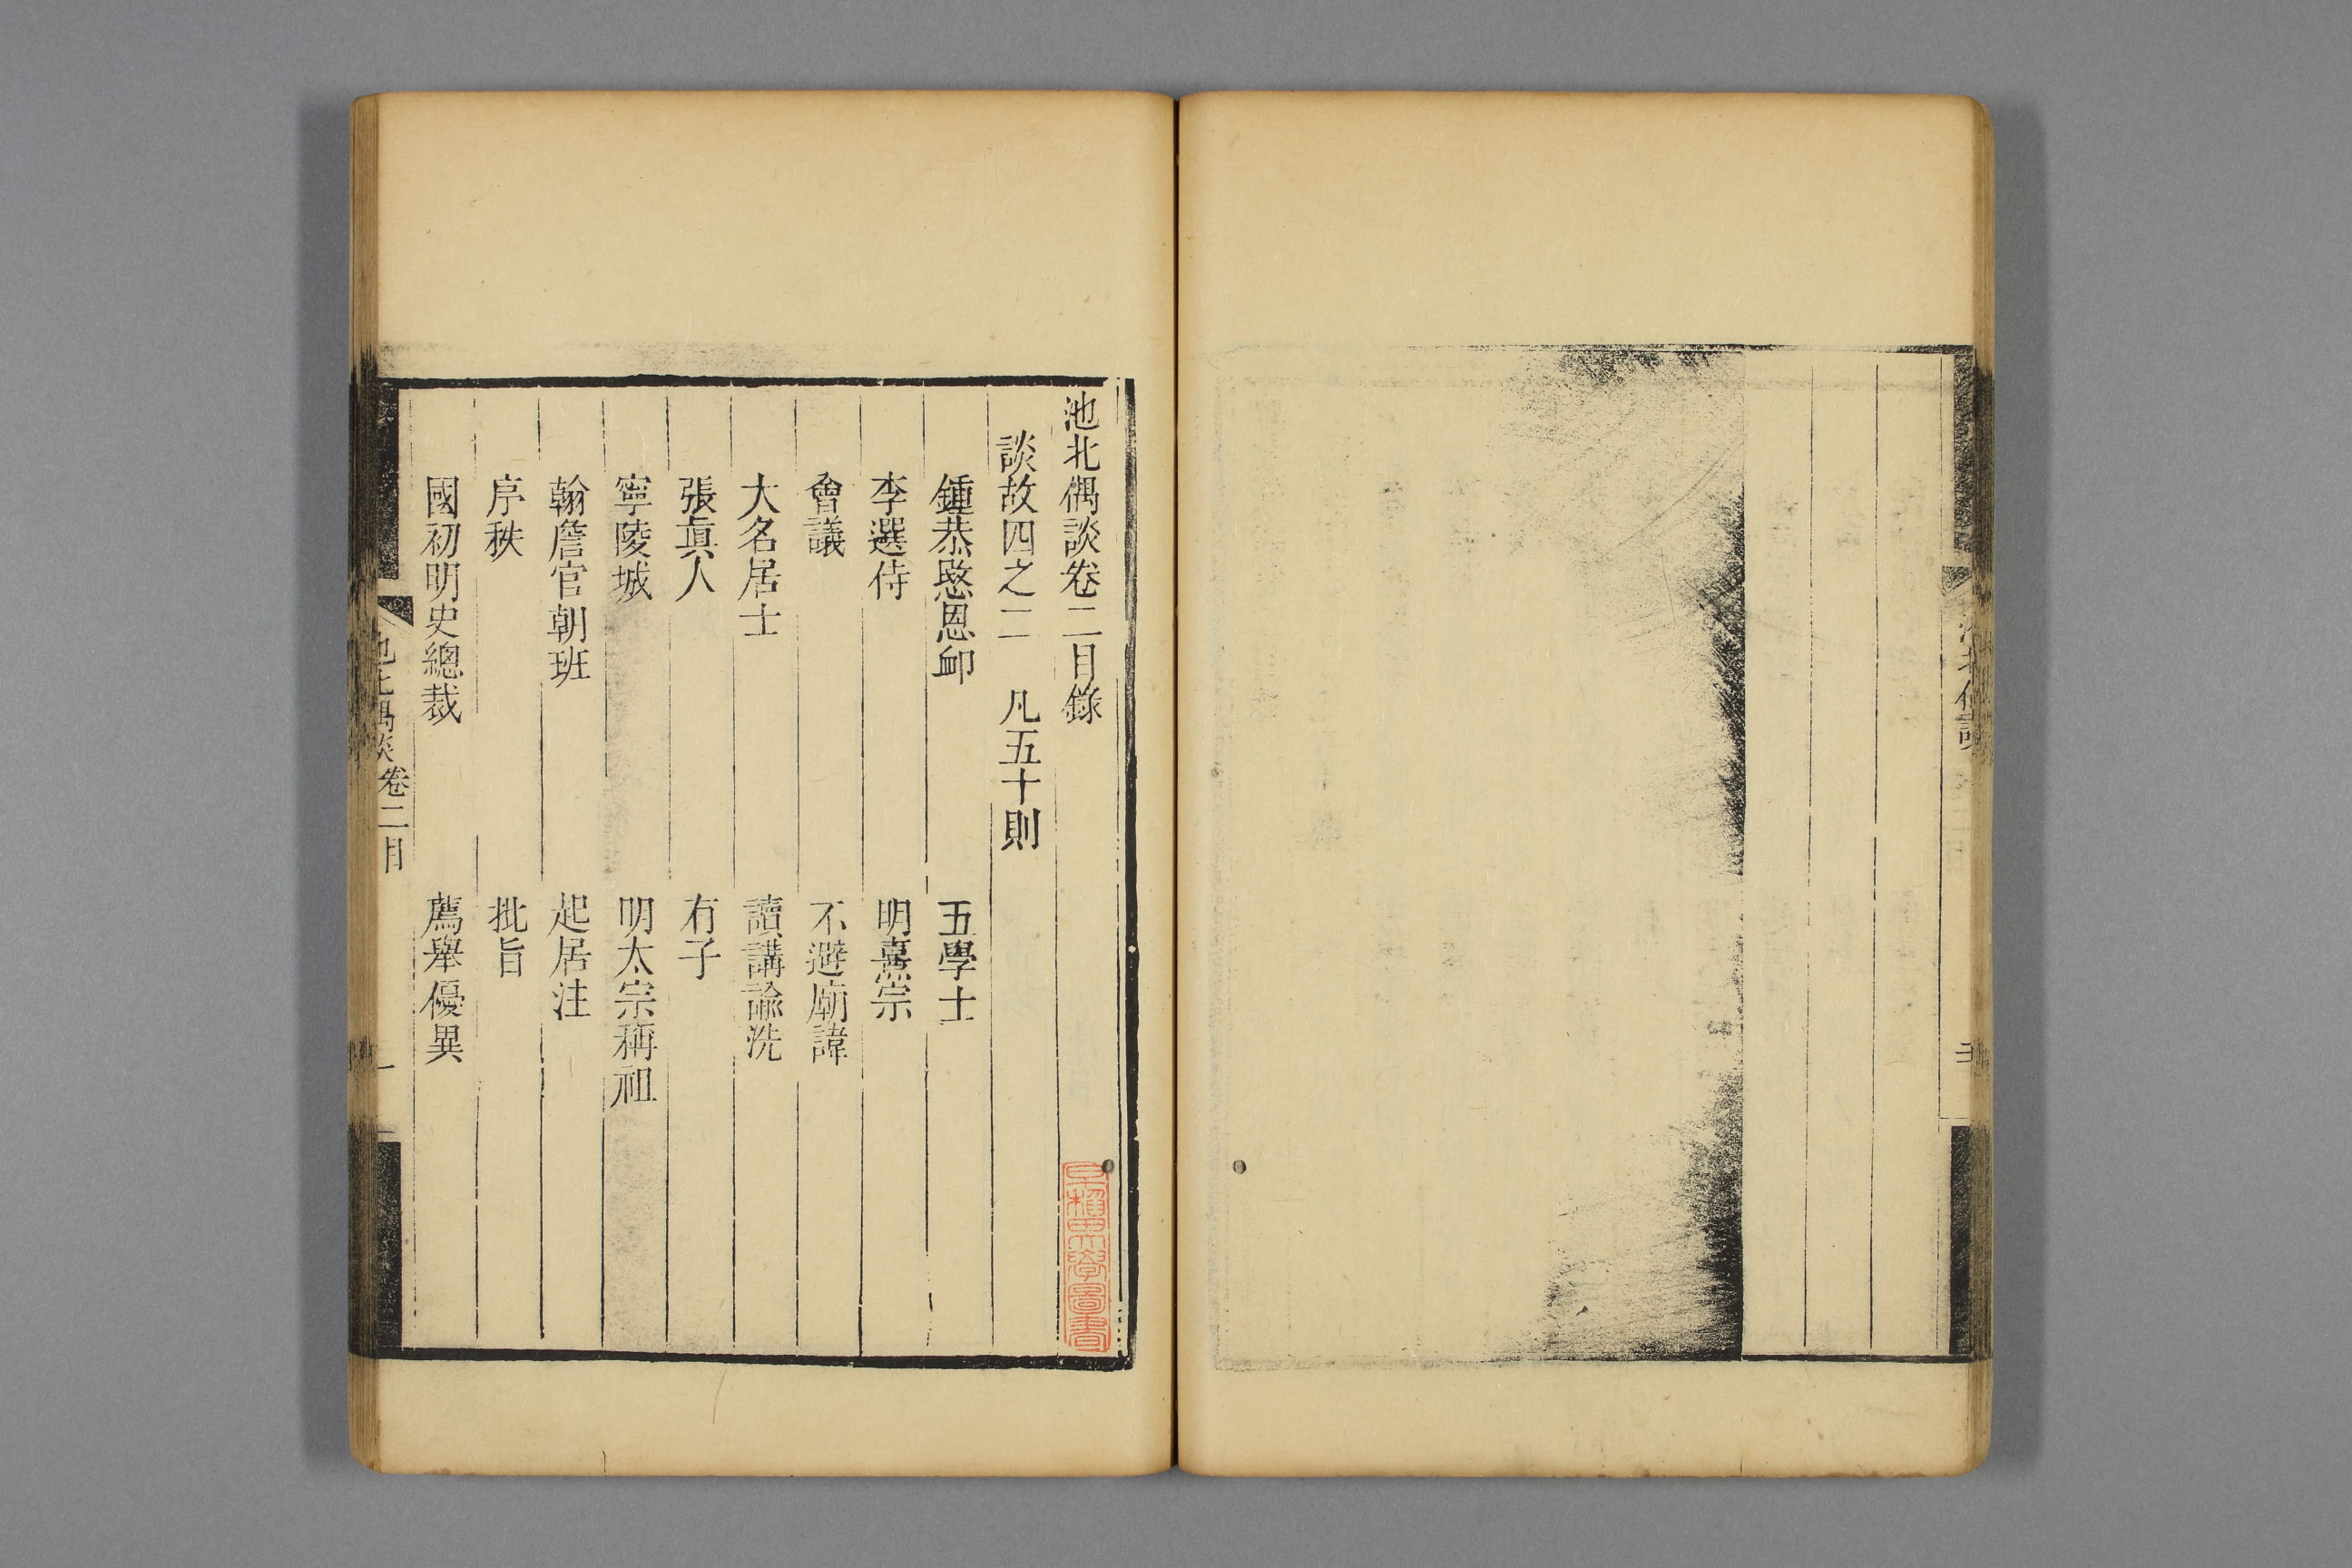 池北偶談卷二目錄
談故四之二　凡五十則
鍾恭愍恩卹　五學士
李選侍　明熹宗
會議　不避廟諱
大名居士　讀講諭洗
張眞人　有子
寧陵城　明太宗稱祖
翰詹官朝班　起居注
序秩　批旨
國初明史總裁　薦舉優異
池北偶談　卷二目　一
早稻田大學圖書
池北偶談